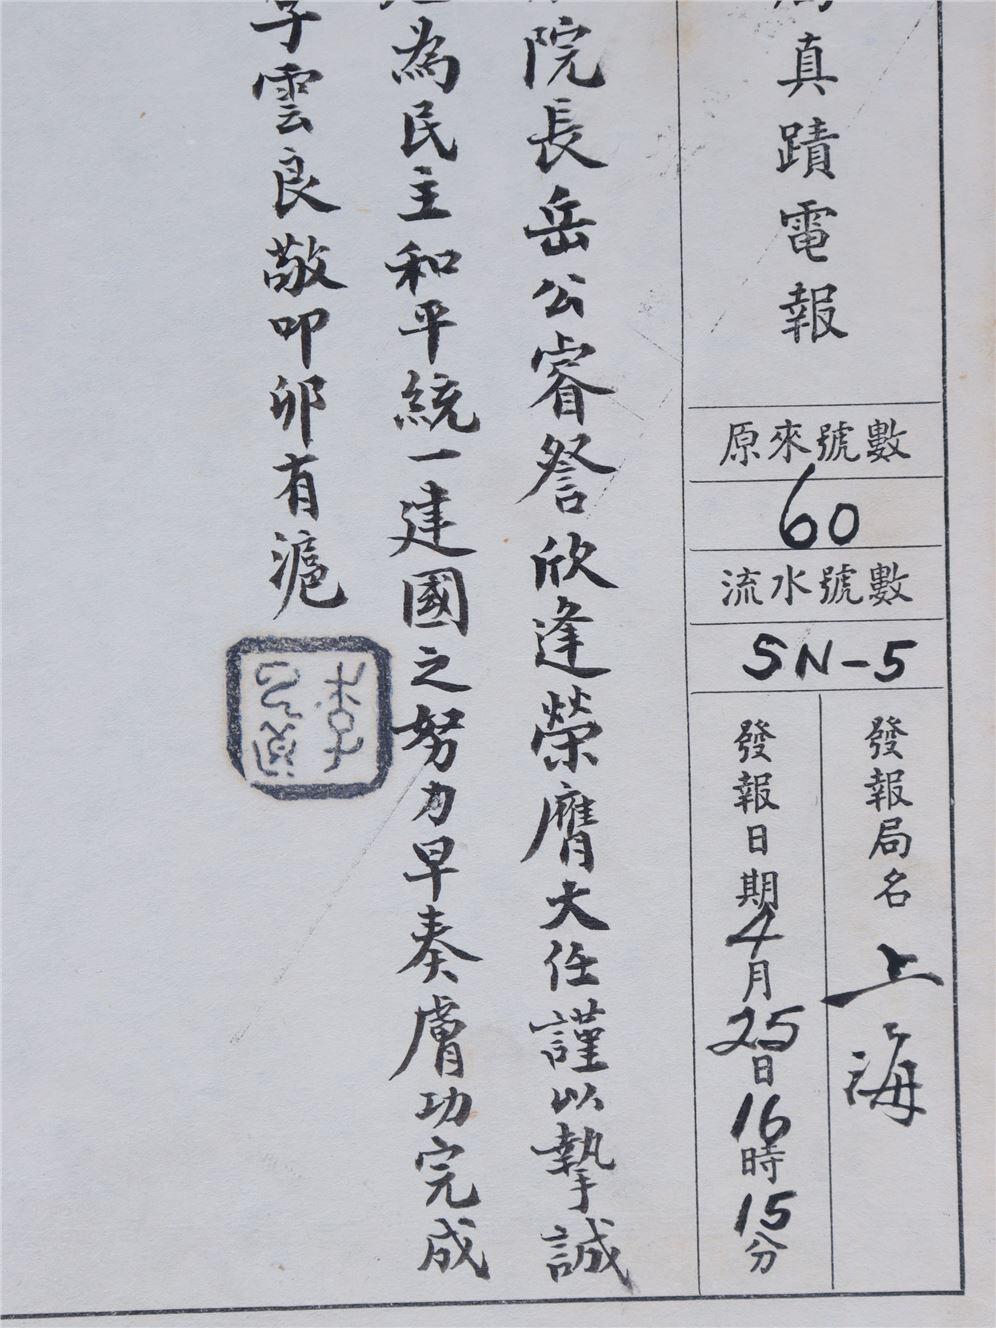 真蹟電報
原來號數
60
流水號數
SN-5
發報局名 上海
發報日期 4月25日16時15分
院長岳公睿詧欣逢榮膺大任謹以摯誠
為民主和平統一建國之努力早奏膚功完成
雲良敬叩卯有滬
李